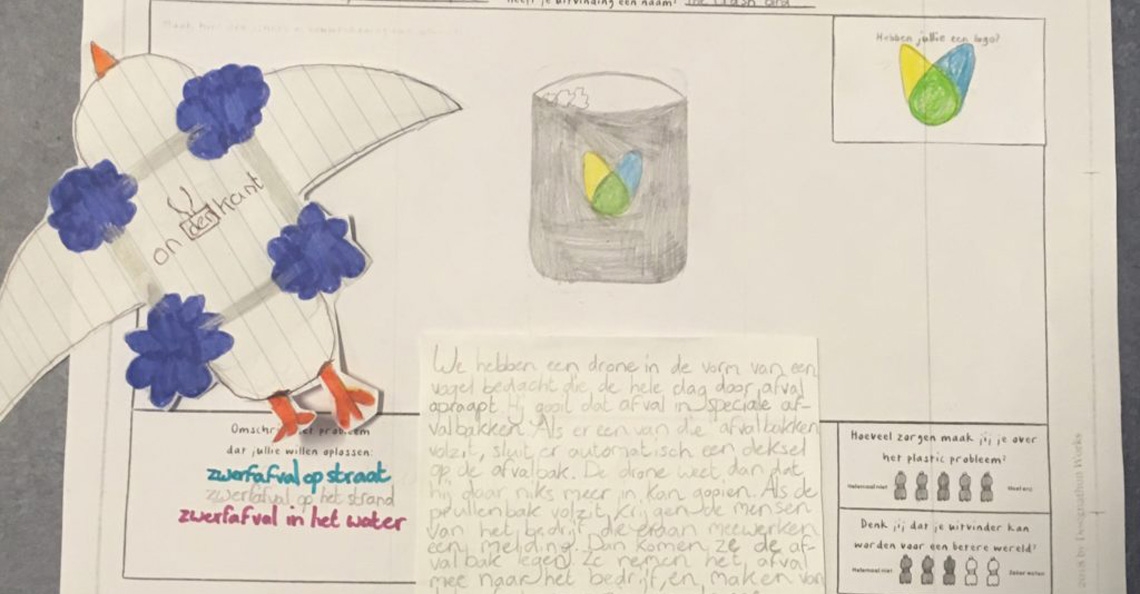 Heeft je uitvinding een naam? The Trash Bird
Hebben jullie een logo?
onderkant
We hebben een drone in de vorm van een
vogel bedacht die, de hele dag door, afval
opraapt. Hij gooit dat afval in speciale af-
valbakken. Als er een van die afvalbakken
volzit, sluit er automatisch een deksel
op de afvalbak. De drone weet dan dat
hij daar niks meer in kan gooien. Als de
prullenbak volzit, krijgen de mensen
van het bedrijf die eraan meewerken
een melding. Dan komen ze de af-
valbak legen. Ze nemen het afval
mee naar het bedrijf, en maken van
Omschrijf het probleem
dat jullie willen oplossen:
zwerfafval op straat
zwerfafval op het strand
zwerfafval in het water
Hoeveel zorgen maak jij je over
het plastic probleem?
Helemaal niet
Heel erg
Denk jij dat je uitvinder kan
worden voor een betere wereld?
Helemaal niet
Zeker weten
2018 by Designathon Works